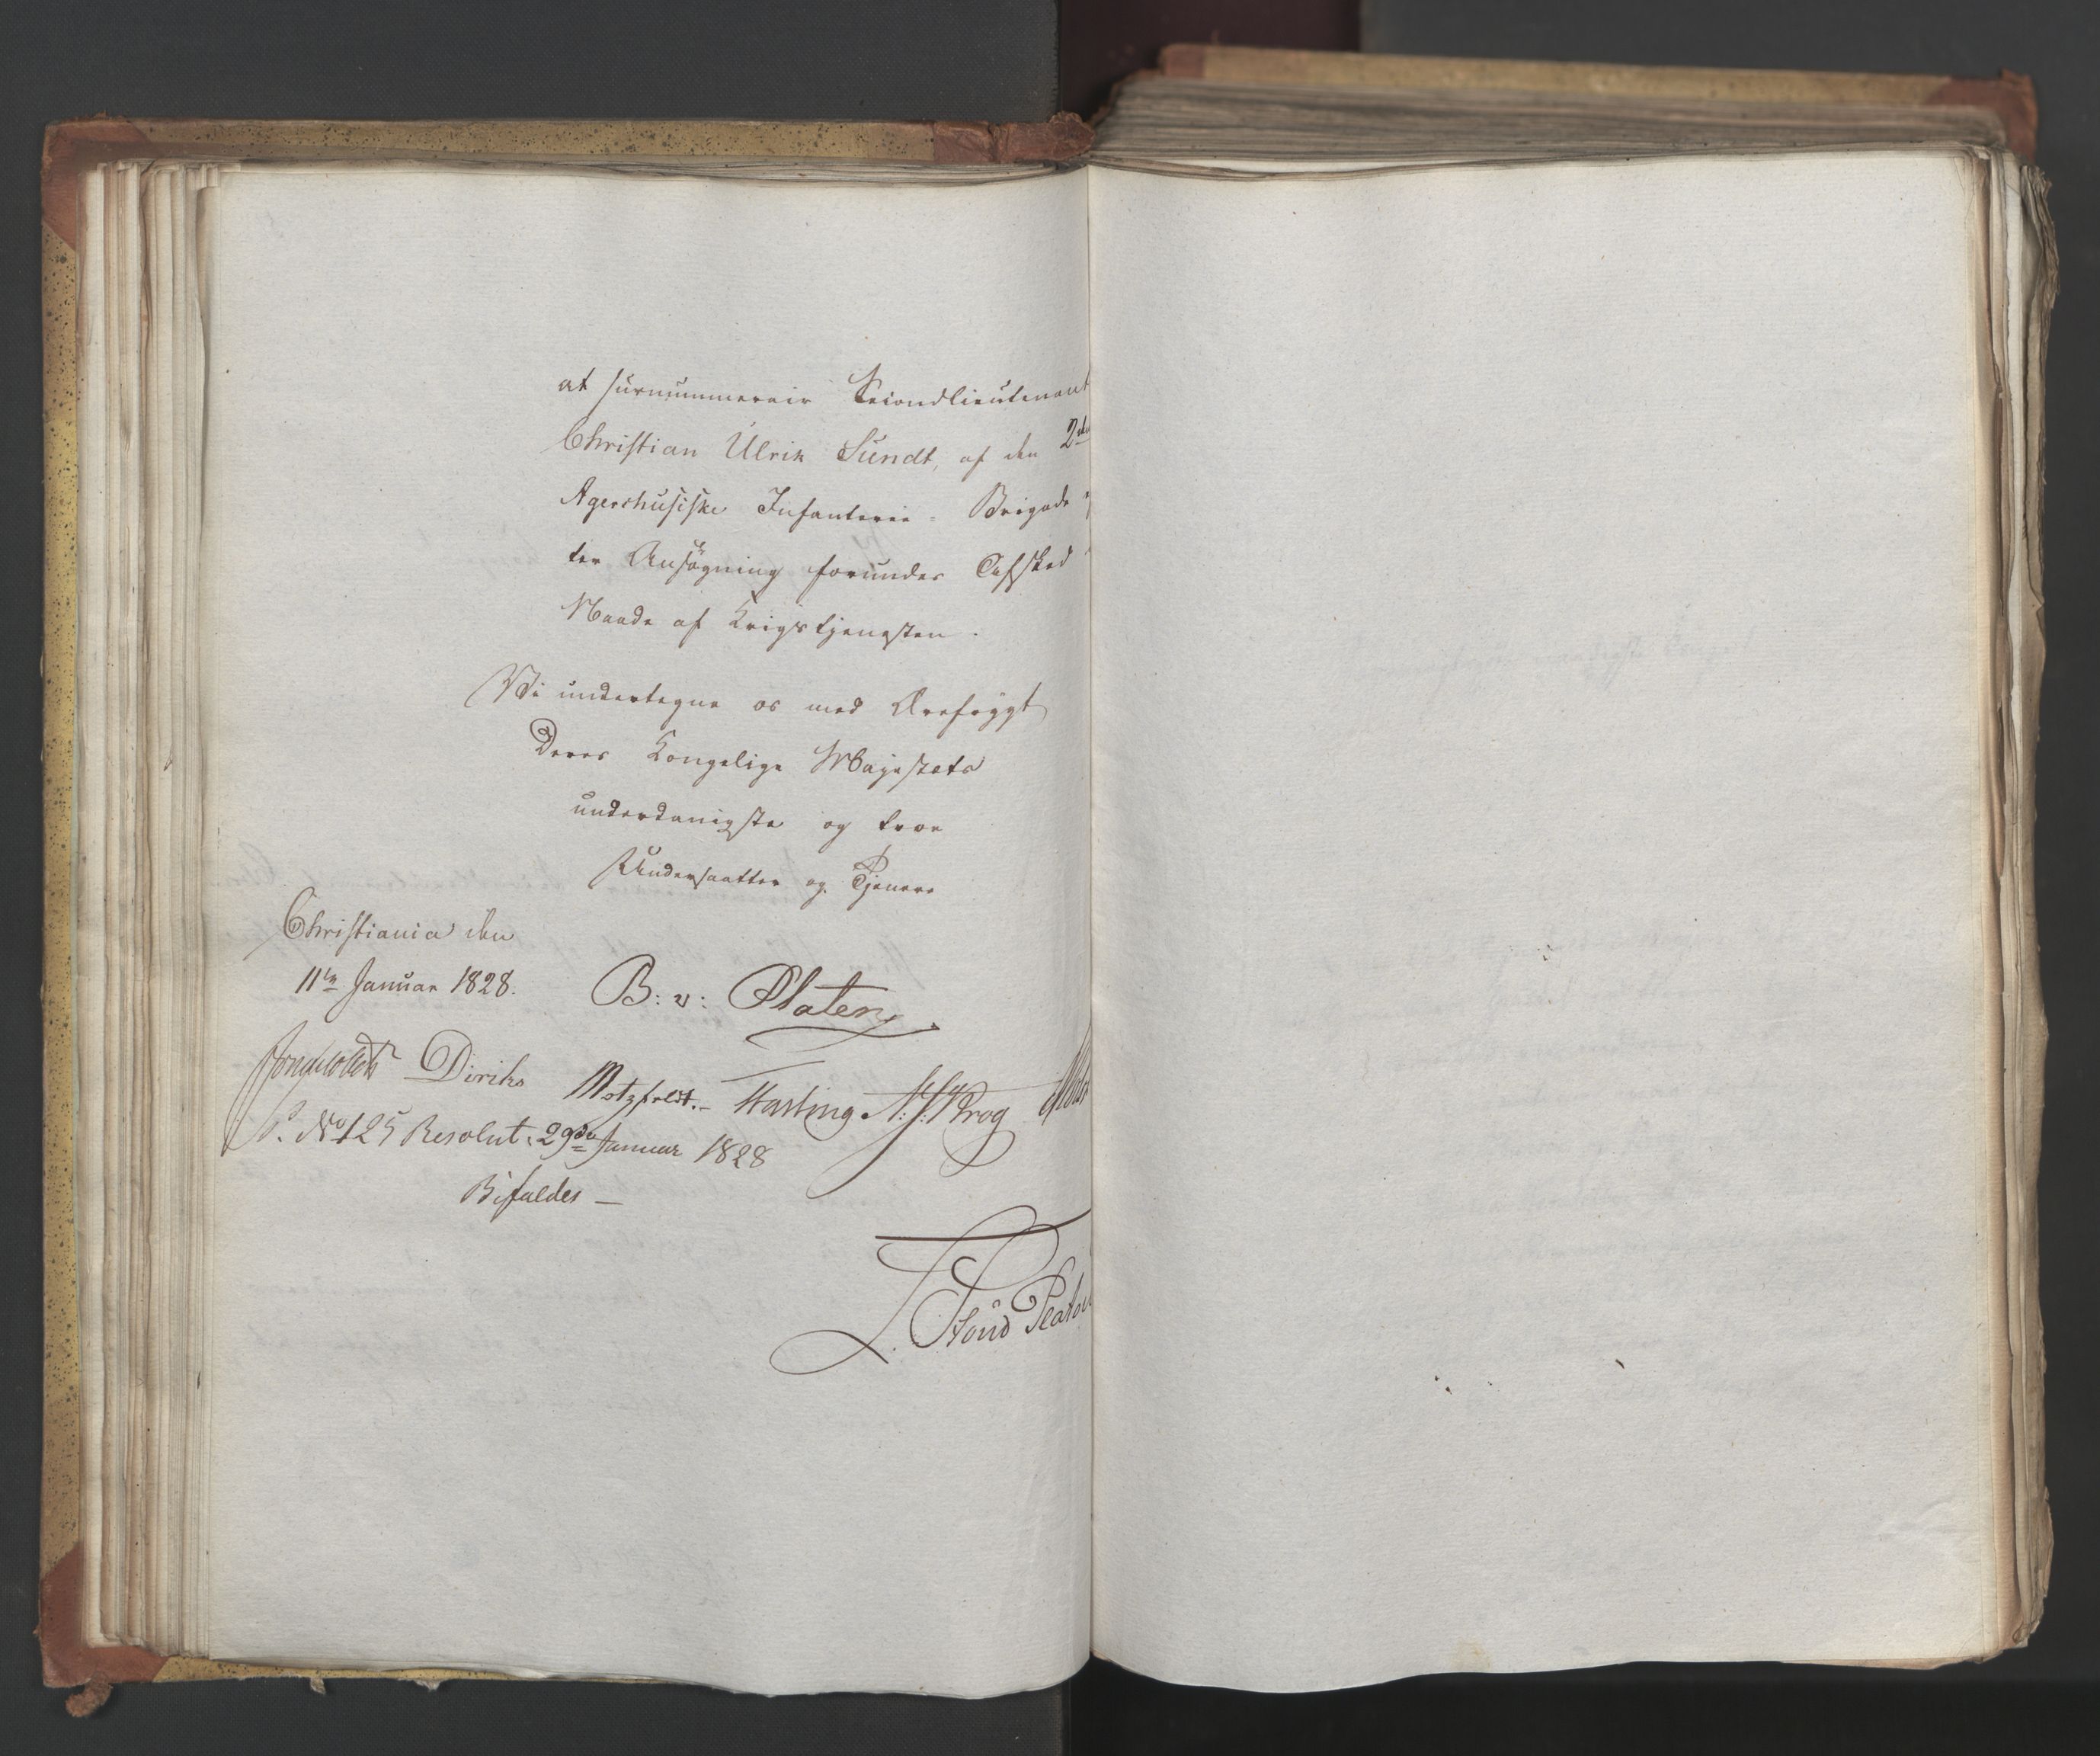 at surnummerair Secondlieutenant
Christian Ulrik Sundt, af den 2den
Agershusiske Infanterie-Brigade
ter Ansøgning forundes Afsked
Naade af Krigstjenesten.
Vi undertegne os med Ærefrygt
Deres Kongelige Majestæts
underdanigste og troe
Undersaatter og Tjenere
Christiania den
11te Januar 1828.
B: v: Platen
Diriks Motzfeldt. Hasting
S. No 125 Resolut: 29de Januar 1828
Bifaldes —